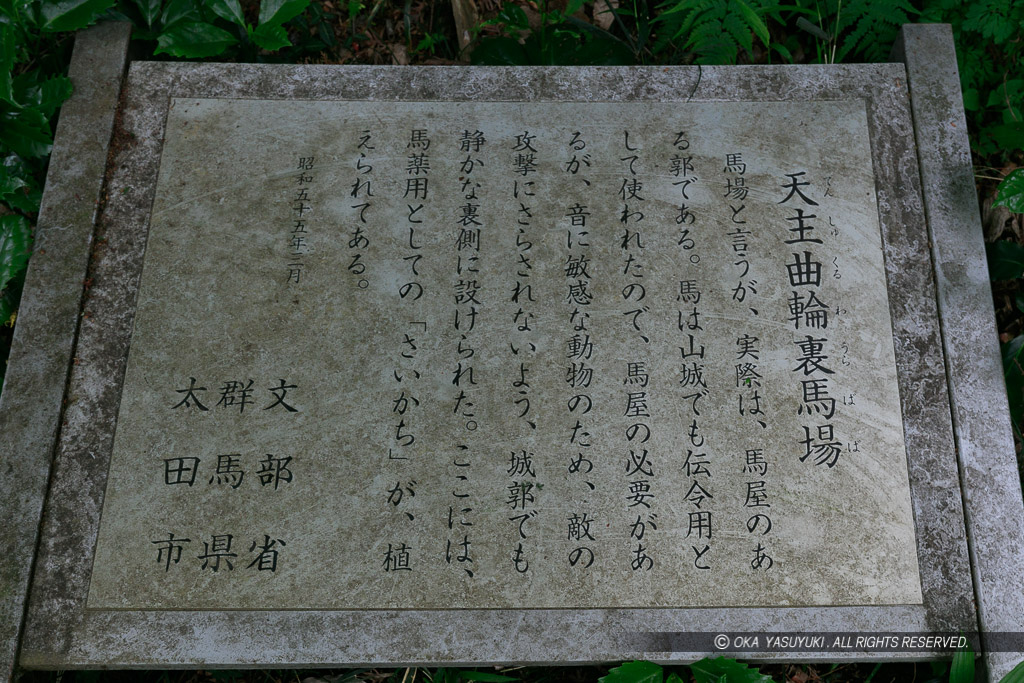 天主曲輪裏馬場
てんしゅくるわうらばば
馬場と言うが、実際は、馬屋のあ
る郭である。馬は山城でも伝令用と
して使われたので、馬屋の必要があ
るが、音に敏感な動物のため、敵の
攻撃にさらされないよう、城郭でも
静かな裏側に設けられた。ここには、
馬薬用としての「さいかち」が、植
えられてある。
昭和五十五年二月
文部省
群馬県
太田市
© OKA YASUYUKI. ALL RIGHTS RESERVED.